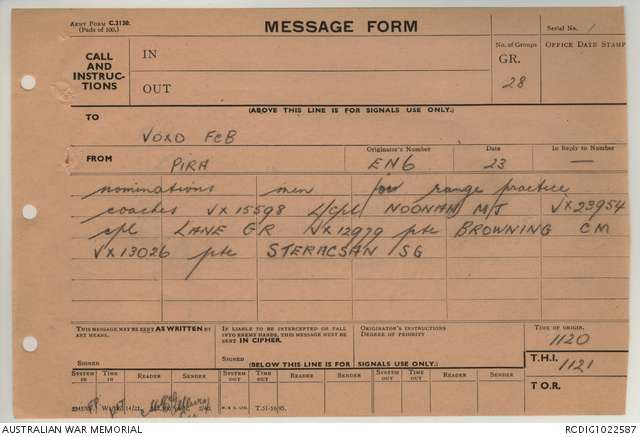 ARMY FORM C.2136:
(Pads of 100.)
MESSAGE FORM
Serial No. 1
CALL
AND
INSTRUC-
TIONS
IN
OUT
No. of Groups
GR.
28
OFFICE DATE STAMP
(ABOVE THIS LINE IS FOR SIGNALS USE ONLY.)
TO
VOXO FCB
FROM
PIRA
Originator's Number
ENG
Date
23
In Reply to Number
—
nominations men for range practice
coaches VX15598 L/cpl NOONAN MJ VX23954
cpl LANE GR VX12979 pte BROWNING CM
VX13026 pte STERACSAN SG
THIS MESSAGE MAY BE SENT AS WRITTEN BY
ANY MEANS.
SIGNED
IF LIABLE TO BE INTERCEPTED OR FALL
INTO ENEMY HANDS, THIS MESSAGE MUST BE
SENT IN CIPHER.
SIGNED
ORIGINATOR'S INSTRUCTIONS
DEGREE OF PRIORITY
TIME OF ORIGIN
1120
T.H.I.
1121
T O R.
(BELOW THIS LINE IS FOR SIGNALS USE ONLY.)
SYSTEM IN
TIME IN
READER
SENDER
SYSTEM OUT
TIME OUT
READER
SENDER
SYSTEM OUT
TIME OUT
READER
SENDER
AUSTRALIAN WAR MEMORIAL
RCDIG1022587